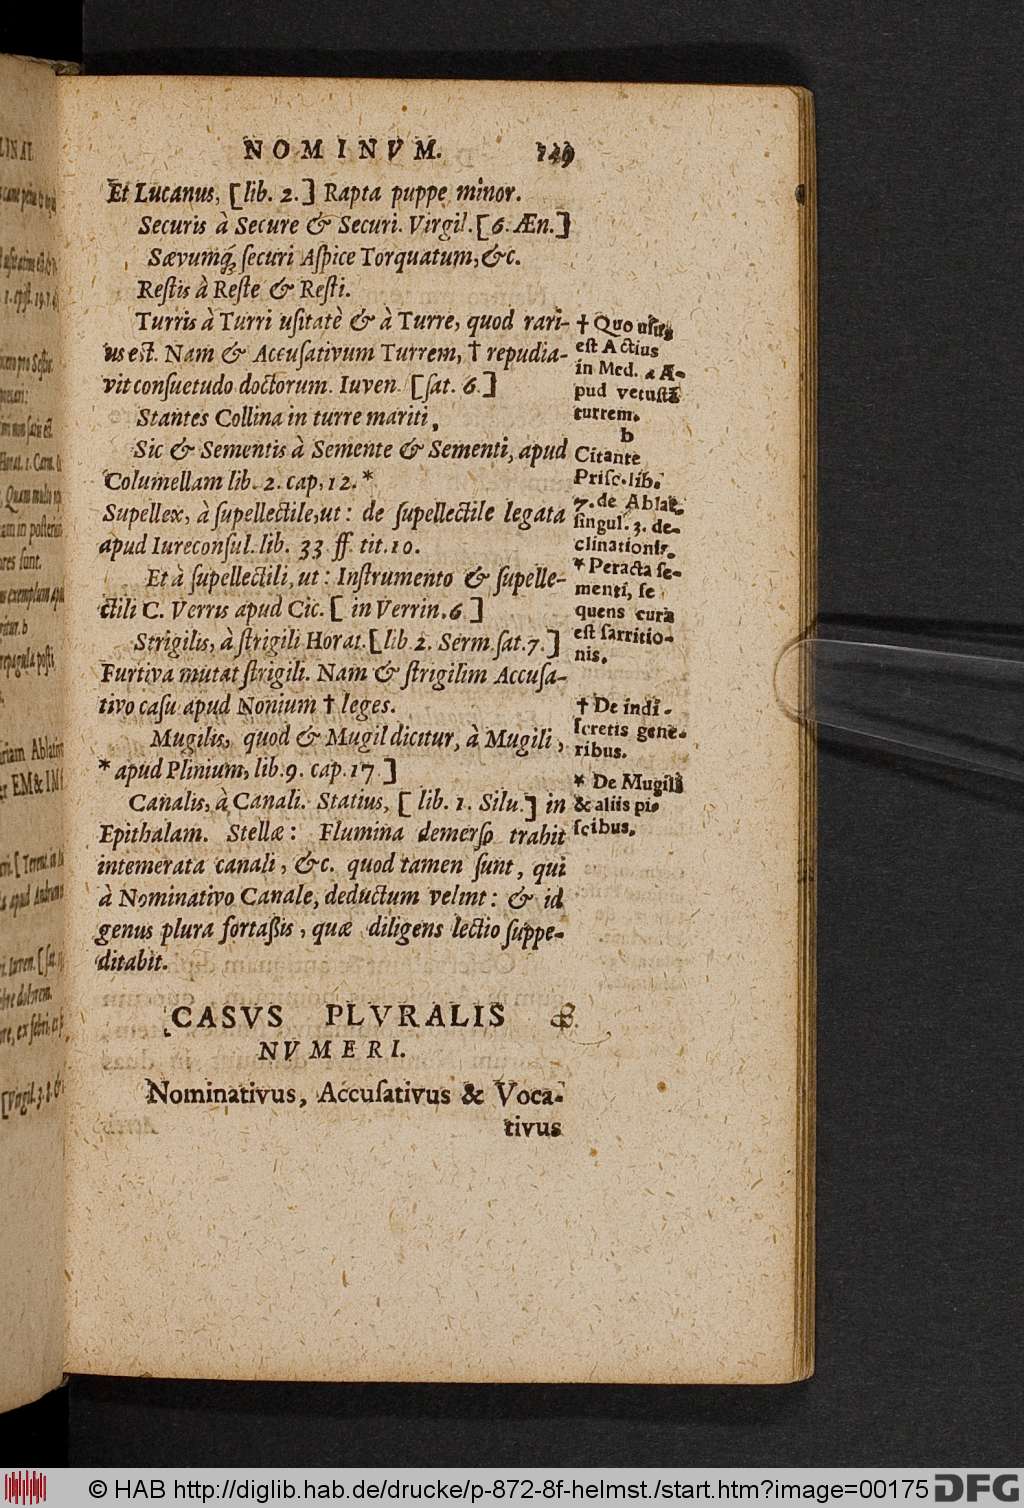 NOMINVM. 149
Et Lucanus, [lib. 2.] Rapta puppe minor.
Securis à Secure & Securi. Virgil. [6. Æn.]
Sævumq́; ſecuri Aſpice Torquatum, &c.
Reſtis à Reſte & Reſti.
Turris à Turri uſitatè & à Turre, quod rari-
us eſt. Nam & Accuſativum Turrem, † repudia-
vit conſuetudo doctorum. Iuven. [ſat. 6.]
Stantes Collina in turre mariti,
Sic & Sementis à Semente & Sementi, apud
Columellam lib. 2. cap, 12. *
Supellex, à ſupellectile, ut: de ſupellectile legata
apud Iureconſul. lib. 33 ff. tit. 10.
Et à ſupellectili, ut: Inſtrumento & ſupelle-
ctili C. Verris apud Cic. [in Verrin. 6]
Strigilis, à ſtrigili Horat. [lib 2. Serm. ſat. 7.]
Furtiva mutat ſtrigili. Nam & ſtrigilim Accuſa-
tivo caſu apud Nonium † leges.
Mugilis, quod & Mugil dicitur, à Mugili,
* apud Plinium, lib. 9. cap. 17]
Canalis, à Canali. Statius, [lib. 1. Silu.] in
Epithalam. Stellæ: Flumina demerſo trahit
intemerata canali, &c. quod tamen ſunt, qui
à Nominativo Canale, deductum velint: & id
genus plura fortaßis, quæ diligens lectio ſuppe-
ditabit.
† Quo uſus
eſt Actius
in Med. A-
pud vetuſtā
turrem.
b
Citante
Priſc. lib.
7. de Ablat.
ſingul. 3. de-
clinationis.
* Peracta ſe-
menti, ſe
quens cura
eſt ſarritio-
nis.
† De indi-
ſcretis gene-
ribus.
* De Mugili
& aliis pi-
ſcibus.
CASVS PLVRALIS
NVMERI.
Nominativus, Accuſativus & Voca-
tivus
© HAB http://diglib.hab.de/drucke/p-872-8f-helmst./start.htm?image=00175 DFG